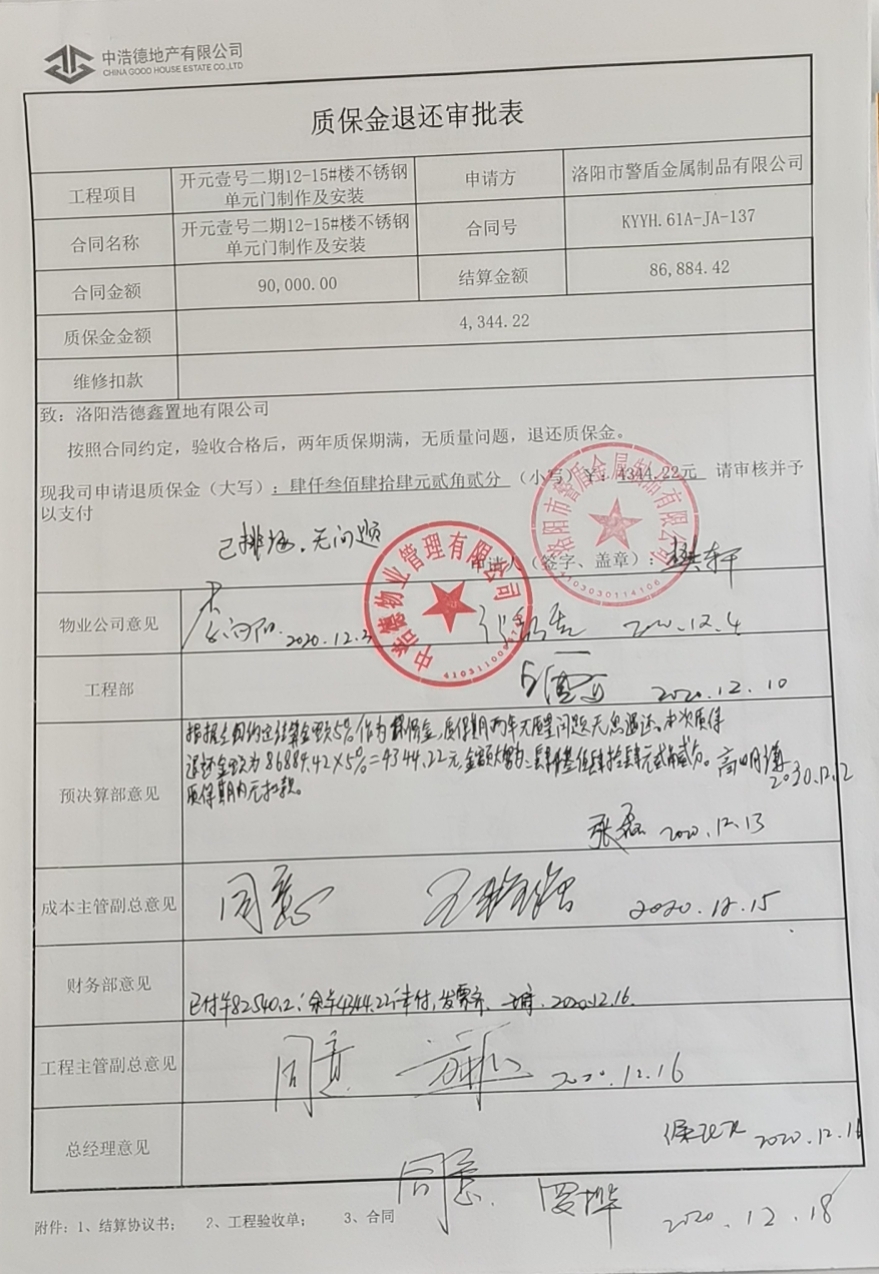 中浩德地产有限公司
CHINA GOOD HOUSE ESTATE CO.,LTD
质保金退还审批表
工程项目 开元壹号二期12-15#楼不锈钢单元门制作及安装 申请方 洛阳市警盾金属制品有限公司
合同名称 开元壹号二期12-15#楼不锈钢单元门制作及安装 合同号 KYYH.61A-JA-137
合同金额 90,000.00 结算金额 86,884.42
质保金金额 4,344.22
维修扣款
致：洛阳浩德鑫置地有限公司
按照合同约定，验收合格后，两年质保期满，无质量问题，退还质保金。
现我司申请退质保金（大写）：肆仟叁佰肆拾肆元贰角贰分 （小写）￥：4344.22元 请审核并予
以支付
已排场，无问题
申请人（签字、盖章）：樊轩
洛阳市警盾金属制品有限公司
4103030114106
中浩德物业管理有限公司
物业公司意见 2020.12.3 2020.12.4
工程部 2020.12.10
预决算部意见
根据合同约定结算金额5%作为质保金，质保期两年无质量问题无息退还。本次质保
退还金额为86884.42×5%=4344.22元，金额大写为：肆仟叁佰肆拾肆元贰角贰分。
质保期内无扣款。
2030.12.12
张磊 2020.12.13
成本主管副总意见 同意 2020.12.15
财务部意见 已付￥82540.2，余￥4344.22未付，发票齐。 2020.12.16.
工程主管副总意见 同意 2020.12.16
总经理意见 2020.12.16
同意. 2020.12.18
附件：1、结算协议书； 2、工程验收单； 3、合同